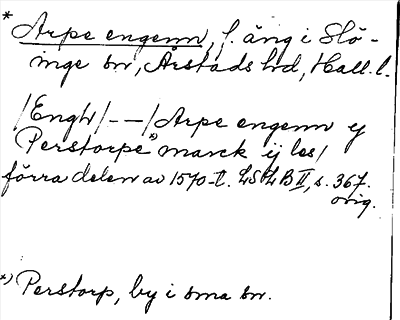 * Arpe engenn, f. äng i Slö-
inge sn, Årstads hd, Hall. l.
/Engh/ - - /Arpe engenn ÿ
Perstorpe *) marck ij les/
förra delen av 1570-t. LSLB II, s. 367.
orig.
*) Perstorp, by i sma sn.